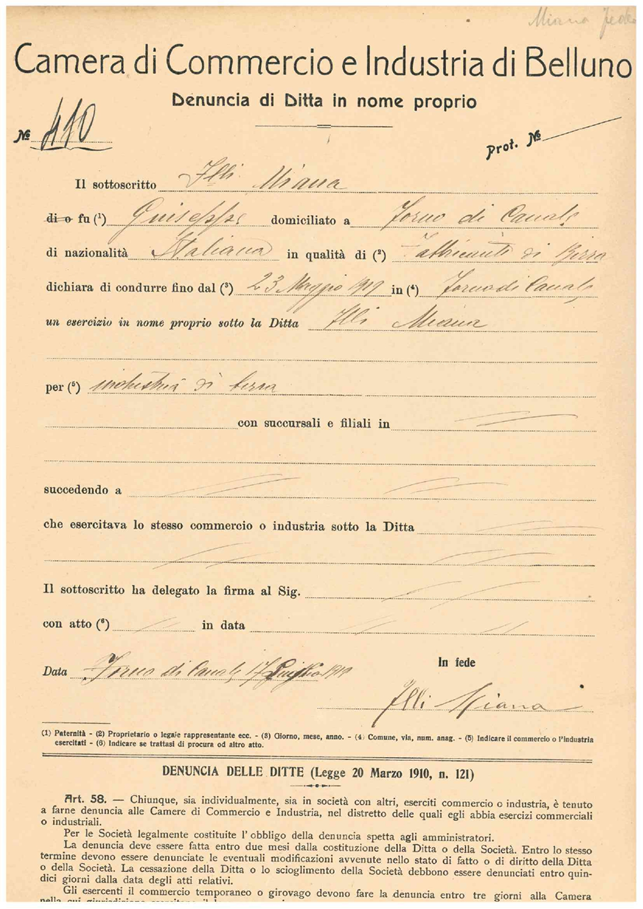 Miana
Camera di Commercio e Industria di Belluno
Denuncia di Ditta in nome proprio
№ 410
Prot. №
Il sottoscritto Flli Miana
di o fu (1) Guiseppe domiciliato a Forno di Canale
di nazionalità Italiana in qualità di (2) di Birra
dichiara di condurre fino dal (3) 23 Maggio 1919 in (4) Forno di Canale
un esercizio in nome proprio sotto la Ditta Flli Miana
per (5) industria di birra
con succursali e filiali in
succedendo a
che esercitava lo stesso commercio o industria sotto la Ditta
Il sottoscritto ha delegato la firma al Sig.
con atto (6) in data
Data Forno di Canale 17 1919
In fede
Flli Miana
(1) Paternità - (2) Proprietario o legale rappresentante ecc. - (3) Giorno, mese, anno. - (4) Comune, via, num. anag. - (5) Indicare il commercio o l'industria
esercitati - (6) Indicare se trattasi di procura od altro atto.
DENUNCIA DELLE DITTE (Legge 20 Marzo 1910, n. 121)
Art. 58. — Chiunque, sia individualmente, sia in società con altri, eserciti commercio o industria, è tenuto
a farne denuncia alle Camere di Commercio e Industria, nel distretto delle quali egli abbia esercizi commerciali
o industriali.
Per le Società legalmente costituite l'obbligo della denuncia spetta agli amministratori.
La denuncia deve essere fatta entro due mesi dalla costituzione della Ditta o della Società. Entro lo stesso
termine devono essere denunciate le eventuali modificazioni avvenute nello stato di fatto o di diritto della Ditta
o della Società. La cessazione della Ditta o lo scioglimento della Società debbono essere denunciati entro quin-
dici giorni dalla data degli atti relativi.
Gli esercenti il commercio temporaneo o girovago devono fare la denuncia entro tre giorni alla Camera
nella cui giurisdizione